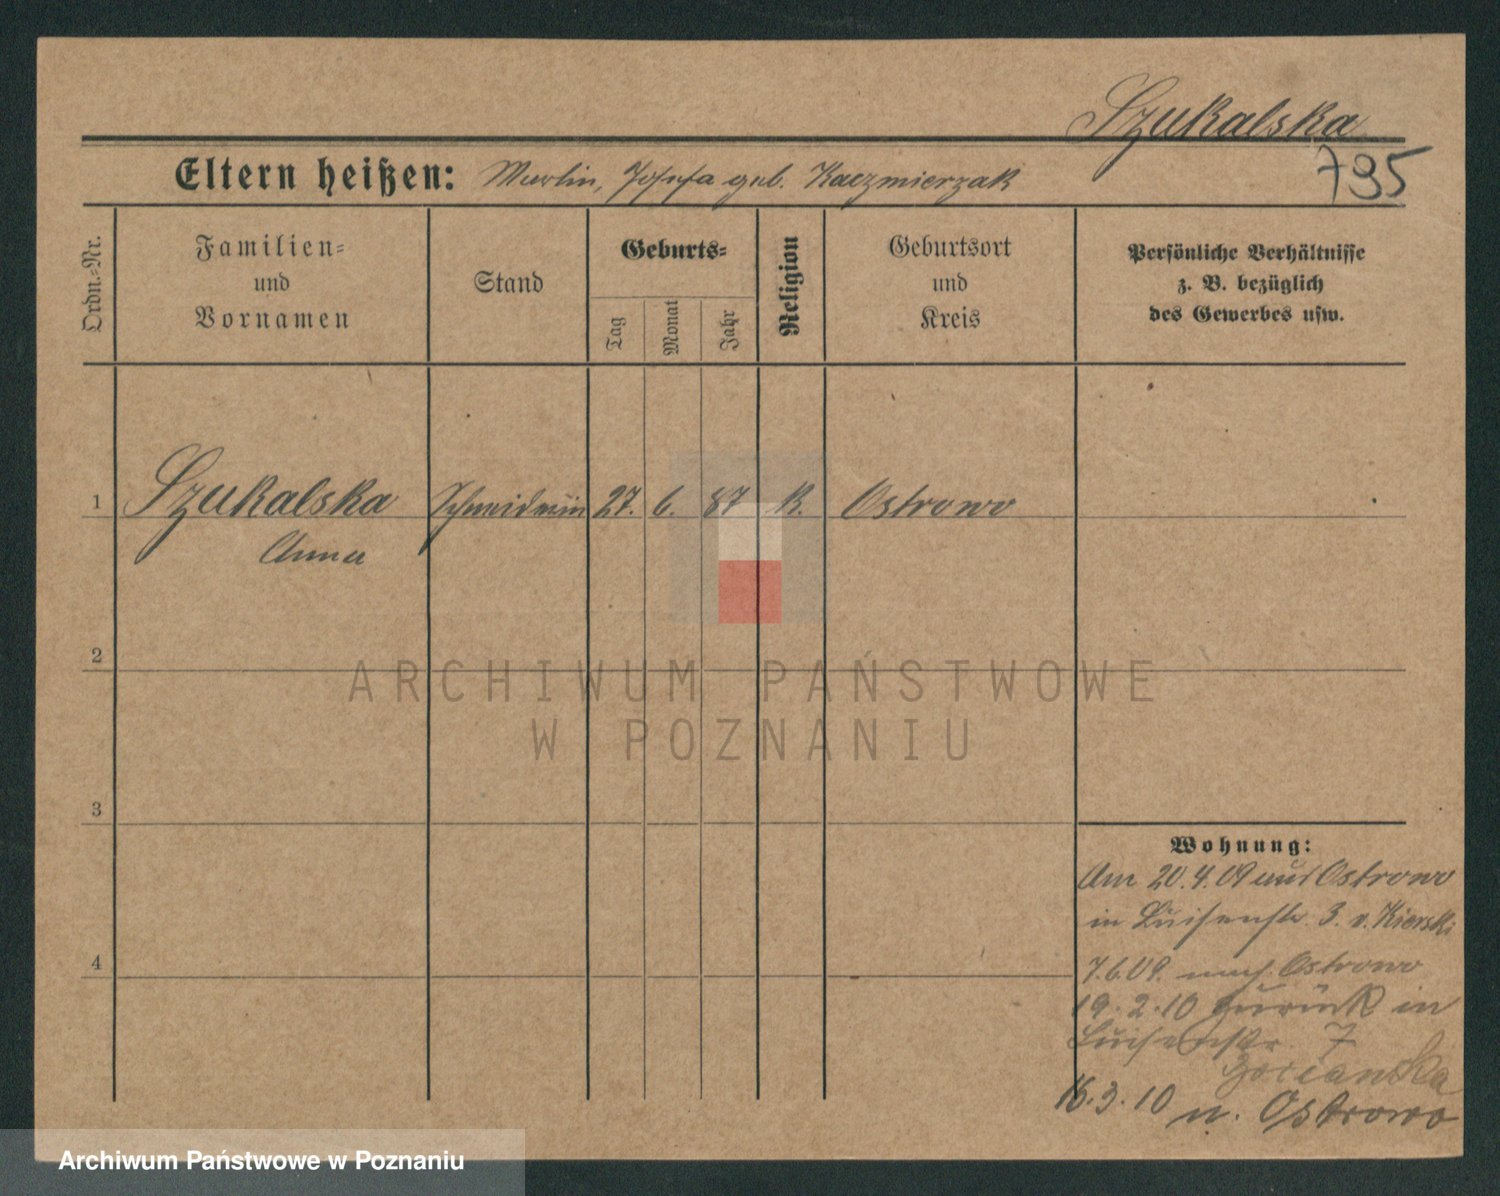 Szukalska
795
Eltern heißen: Josefa geb. Kaczmierzak
Ordn.-Nr.
Familien-
und
Vornamen
Stand
Geburts-
Tag
Monat
Jahr
Religion
Geburtsort
und
Kreis
Persönliche Verhältnisse
z. B. bezüglich
des Gewerbes usw.
1 Szukalska 27. 6. 87 K. Ostrowo
Anna
2
3
4
Wohnung:
Am 20.4.09 aus Ostrowo
in Luisenstr. 3. v. Kierski
7.6.09. nach Ostrowo
19.2.10 zurück in
Luisenstr. 7
16.3.10 n. Ostrowo
ARCHIWUM PAŃSTWOWE
W POZNANIU
Archiwum Państwowe w Poznaniu